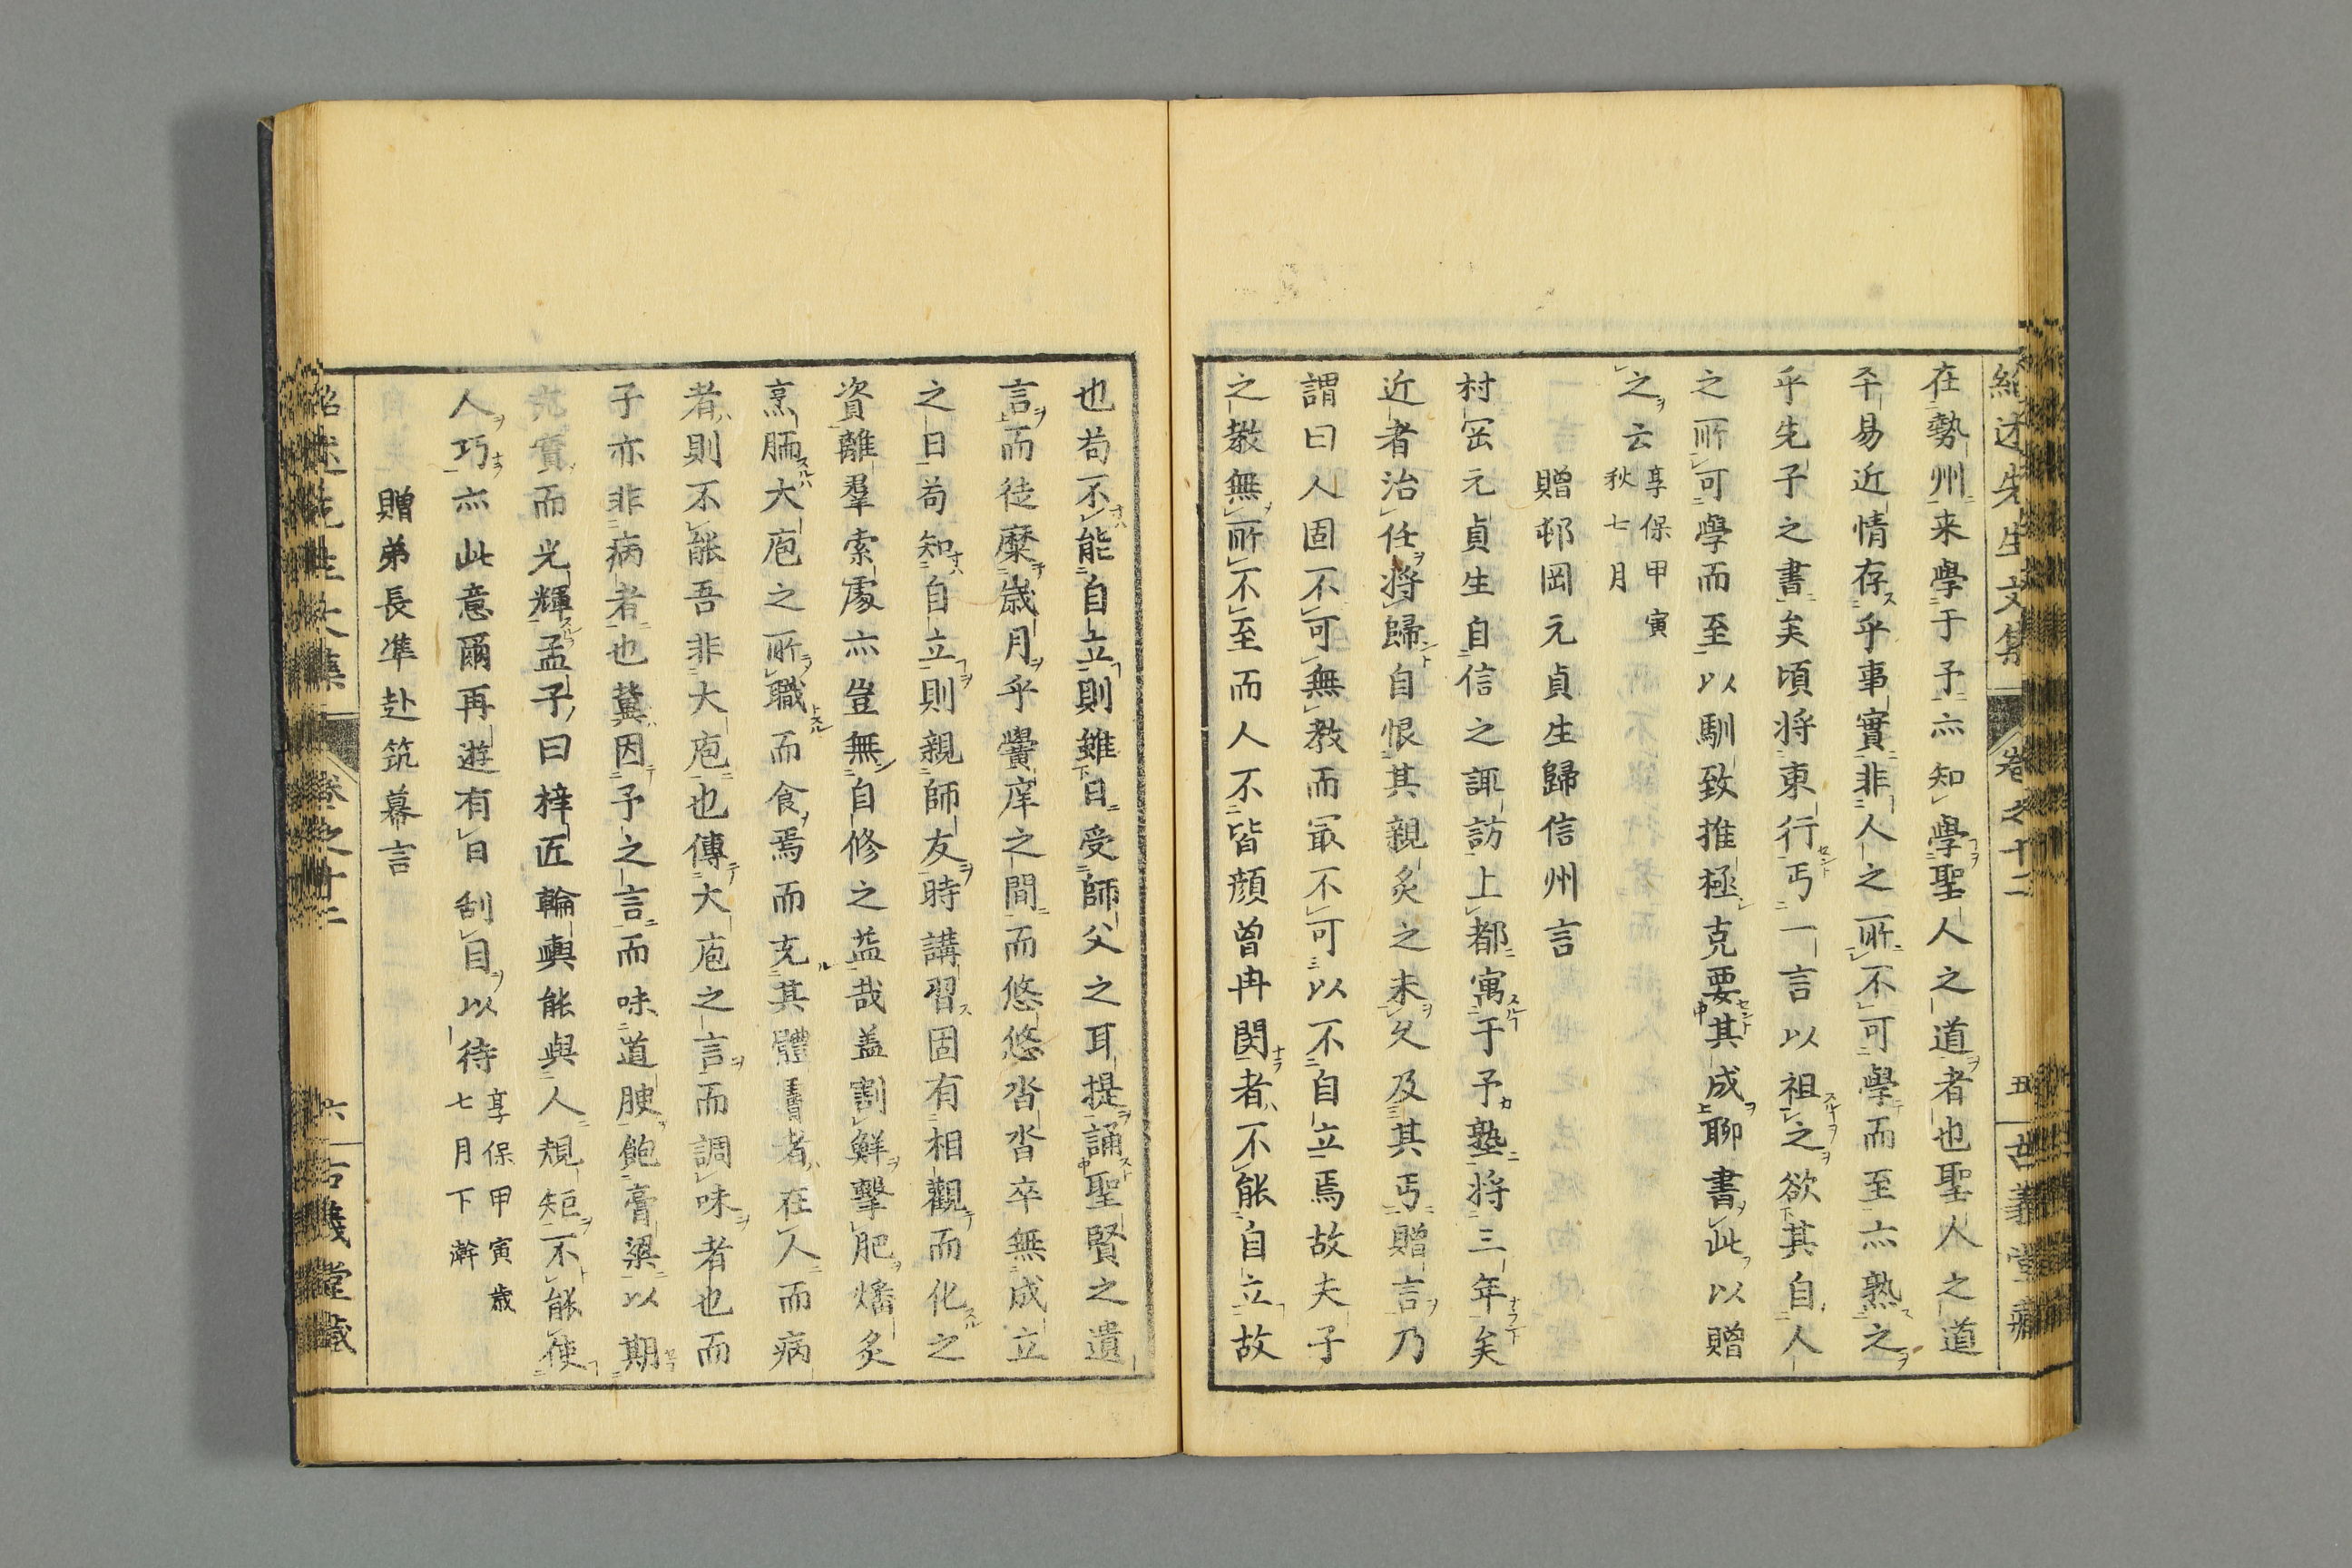 紹述先生文集 卷之十二 五 古義堂藏
在勢州来學于予亦知學聖人之道者也聖人之道
平易近情存乎事實非人之所不可學而至亦熟之
乎先子之書矣頃将東行丐一言以祖之欲其自人
之所可學而至以馴致推極克要其成聊書此以贈
之云享保甲寅秋七月
贈邨岡元貞生歸信州言
村岡元貞生自信之諏訪上都寓于予塾将三年矣
近者治任将歸自恨其親炙之未久及其丐贈言乃
謂曰人固不可無教而冣不可以不自立焉故夫子
之教無所不至而人不皆顔曽冉閔者不能自立故
也苟不能自立則雖日受師父之耳提誦聖賢之遺
言而徒糜歳月乎黌庠之間而悠悠沓沓卒無成立
之日苟知自立則親師友時講習固有相觀而化之
資離羣索處亦豈無自修之益哉盖割鮮擊肥燔炙
烹胹大庖之所職而食焉而充其體膚者在人而病
者則不能吾非大庖也傳大庖之言而調味者也而
子亦非病者也冀因予之言而味道腴飽膏粱以期
充實而光輝孟子曰梓匠輪輿能與人規矩不能使
人巧亦此意爾再遊有日刮目以待享保甲寅歳七月下澣
贈弟長準赴筑幕言
紹述先生文集 卷之十二 六 古義堂藏